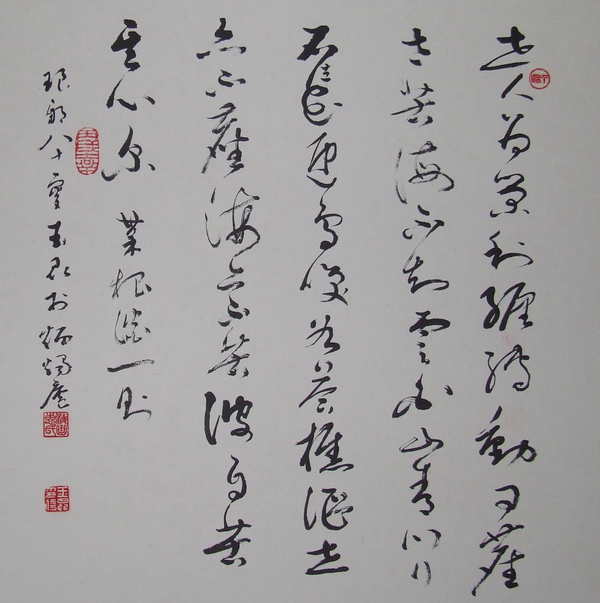 世人为荣利纏縛動曰塵
世苦海不知雲白山青川行
石立花迎鳥咲谷答樵謳世
亦不塵海亦不苦彼自苦
其心尔 菜根譚一則
琅邪八十叟玉於炳燭庵